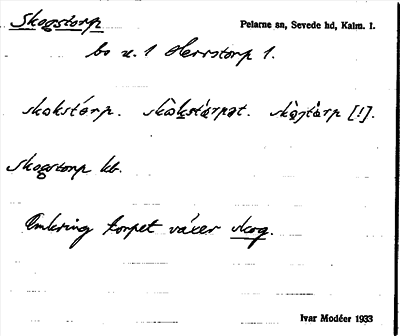 Skogstorp Pelarne sn, Sevede hd, Kalm. l.
bo u. 1 Herrstorp 1.
skokstårp. skòkstárpət. skòJtàrp [!].
Skogstorp kb.
Omkring torpet växer skog.
Ivar Modéer 1933